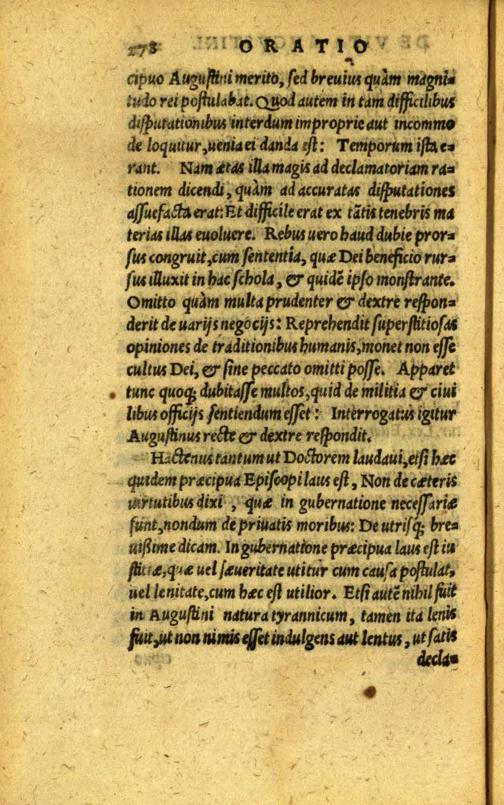 278 ORATIO
cipuo Augustini merito, sed breuius quàm magni-
tudo rei postulabat. Quod autem in tam difficilibus
disputationibus interdum improprie aut incommo
de loquitur, uenia ei danda est: Temporum ista e-
rant. Nam ætas illa magis ad declamatoriam ra-
tionem dicendi, quàm ad accuratas disputationes
assuefacta erat: Et difficile erat ex tātis tenebris ma
terias illas euoluere. Rebus uero haud dubie pror-
sus congruit, cum sententia, quæ Dei beneficio rur-
sus illuxit in hac schola, & quidē ipso monstrante.
Omitto quàm multa prudenter & dextre respon-
derit de uarijs negocijs: Reprehendit superstitiosas
opiniones de traditionibus humanis, monet non esse
cultus Dei, & sine peccato omitti posse. Apparet
tunc quoq; dubitasse multos, quid de militia & ciui
libus officijs sentiendum esset: Interrogatus igitur
Augustinus recte & dextre respondit.
Hactenus tantum ut Doctorem laudaui, etsi hæc
quidem præcipua Episcopi laus est, Non de cæteris
uirtutibus dixi, quæ in gubernatione necessariæ
sunt, nondum de priuatis moribus: De utrisq; bre-
uissime dicam. In gubernatione præcipua laus est iu
stitiæ, quæ uel sæueritate utitur cum causa postulat,
uel lenitate, cum hæc est utilior. Etsi autē nihil fuit
in Augustini natura tyrannicum, tamen ita lenis
fuit, ut non nimis esset indulgens aut lentus, ut satis
decla-